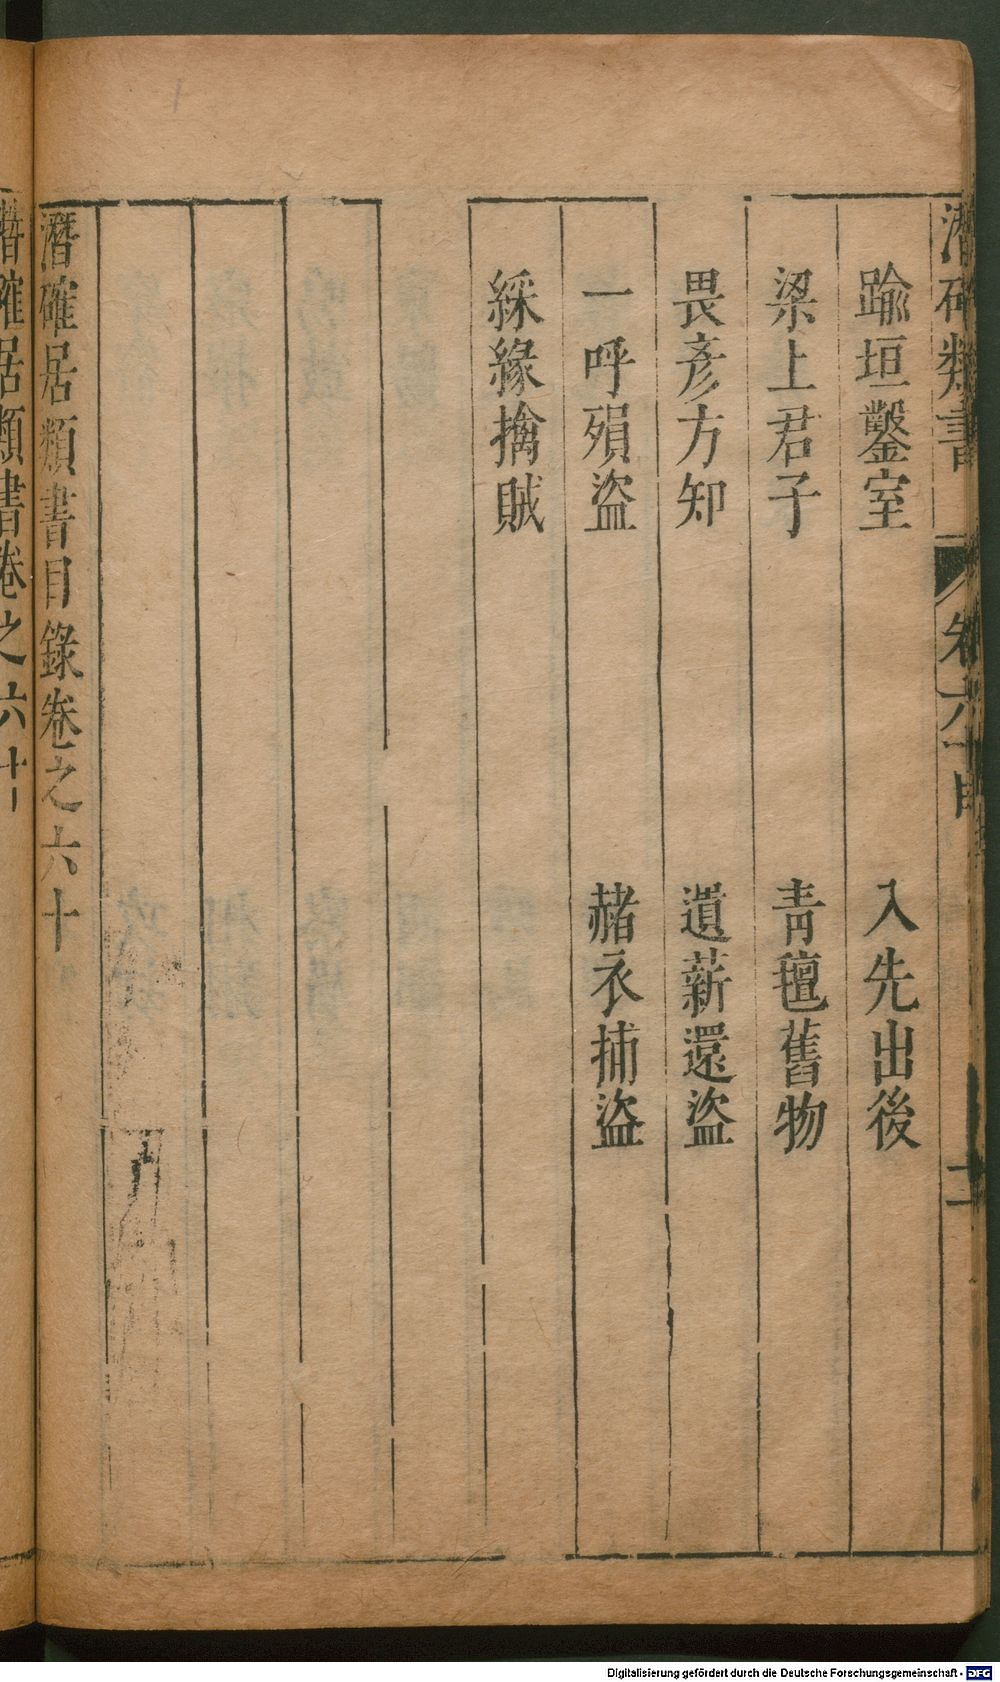 潛確類書
卷六十 目
二
踰垣鑿室 入先出後
梁上君子 青氊舊物
畏彥方知 遺薪還盜
一呼殞盜 赭衣捕盜
綵緣擒賊
潛確居類書目錄卷之六十
潛確居類書卷之六十
Digitalisierung gefördert durch die Deutsche Forschungsgemeinschaft - DFG